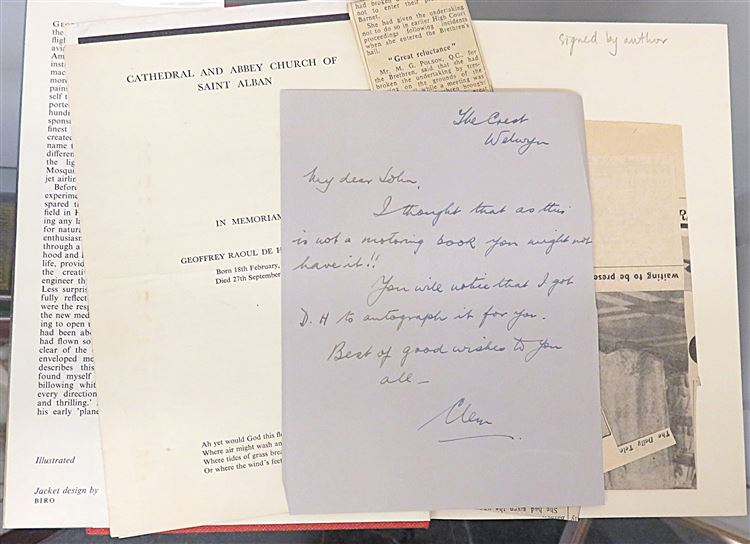 GEO
the
flig
avia
Am
inst
mac
more
pain
self t
porte
hund
spons
finest
create
name t
differen
the lig
Mosqui
jet airlin
Before
experime
spared th
field in H
ing any la
for natura
enthusiasm
through a
hood and l
life, provid
the creativ
engineer th
Less surpris
fully reflect
were the resp
the new med
ing to open u
had been abo
had flown so
clear of the
enveloped me
describes this
found myself
billowing whit
every direction
and thrilling.'
his early 'plane
Illustrated
Jacket design by
BIRO
CATHEDRAL AND ABBEY CHURCH OF
SAINT ALBAN
IN MEMORIAM
GEOFFREY RAOUL DE H
Born 18th February,
Died 27th September
Ah yet would God this fl
Where air might wash an
Where tides of grass brea
Or where the wind's feet
had broken
not to enter their
Barnet.
She had given the undertaking
not to do so in earlier High Court
proceedings following incidents
when she entered the Brethren's
hall.
"Great reluctance"
Mr. M. G. POLSON, Q.C., for
the Brethren, said that she had
broken the undertaking by tres-
on the grounds of the
while a meeting was
The Crest
Welwyn
My dear John,
I thought that as this
is not a motoring book you might not
have it!!
You will notice that I got
D. H to autograph it for you.
Best of good wishes to you
all —
Clem
signed by author
waiting to be prese
The Daily Tele
She had given the